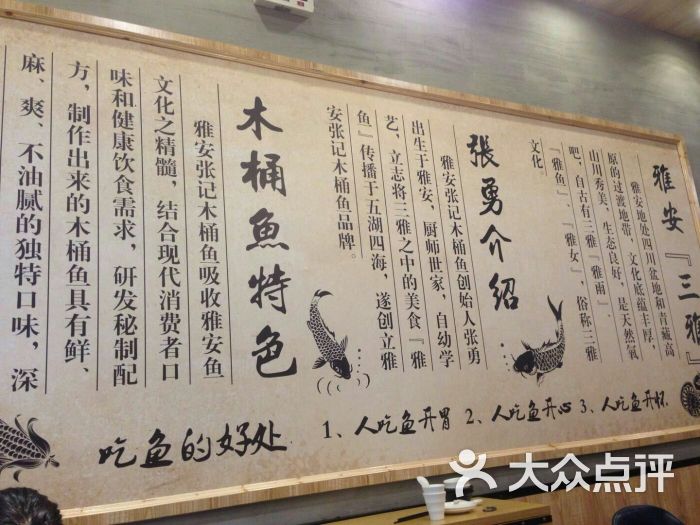 雅安『三雅』
雅安地处四川盆地和青藏高
原的过渡地带，文化底蕴丰厚，
山川秀美，生态良好，是天然氧
吧，自古有三雅『雅雨』、
『雅鱼』、『雅女』，俗称三雅
文化
張勇介绍
雅安张记木桶鱼创始人张勇
出生于雅安，厨师世家，自幼学
艺，立志将三雅之中的美食『雅
鱼』传播于五湖四海，遂创立雅
安张记木桶鱼品牌。
木桶魚特色
雅安张记木桶鱼吸收雅安鱼
文化之精髓，结合现代消费者口
味和健康饮食需求，研发秘制配
方，制作出来的木桶鱼具有鲜、
麻、爽、不油腻的独特口味，深
吃鱼的好处 1、人吃鱼开胃 2、人吃鱼开心 3、人吃鱼开怀
大众点评